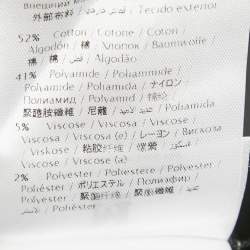 外部布料 / Tecido exterior
52% Cotton / Cotone / Coton /
Algodón / 棉 / Хлопок / Baumwolle
棉 / 棉 / قطن / Algodão
41% Polyamide / Poliammide /
Polyamide / Poliamida / ナイロン /
Полиамид / Polyamid /
聚醯胺纖維 / 尼龍 /
5% Viscose / Viscosa / Viscose /
Viscosa / Viscosa (e) / レーヨン / Вискоза
Viskose / 粘胶纤维 / 嫘縈 /
Viscose / Viscosa (e)
2% Polyester / Poliestere / Polyester /
Poliéster / ポリエステル / Полиэфир /
Polyester / 聚酯纤维 / 聚酯纖維 /
/ Poliéster